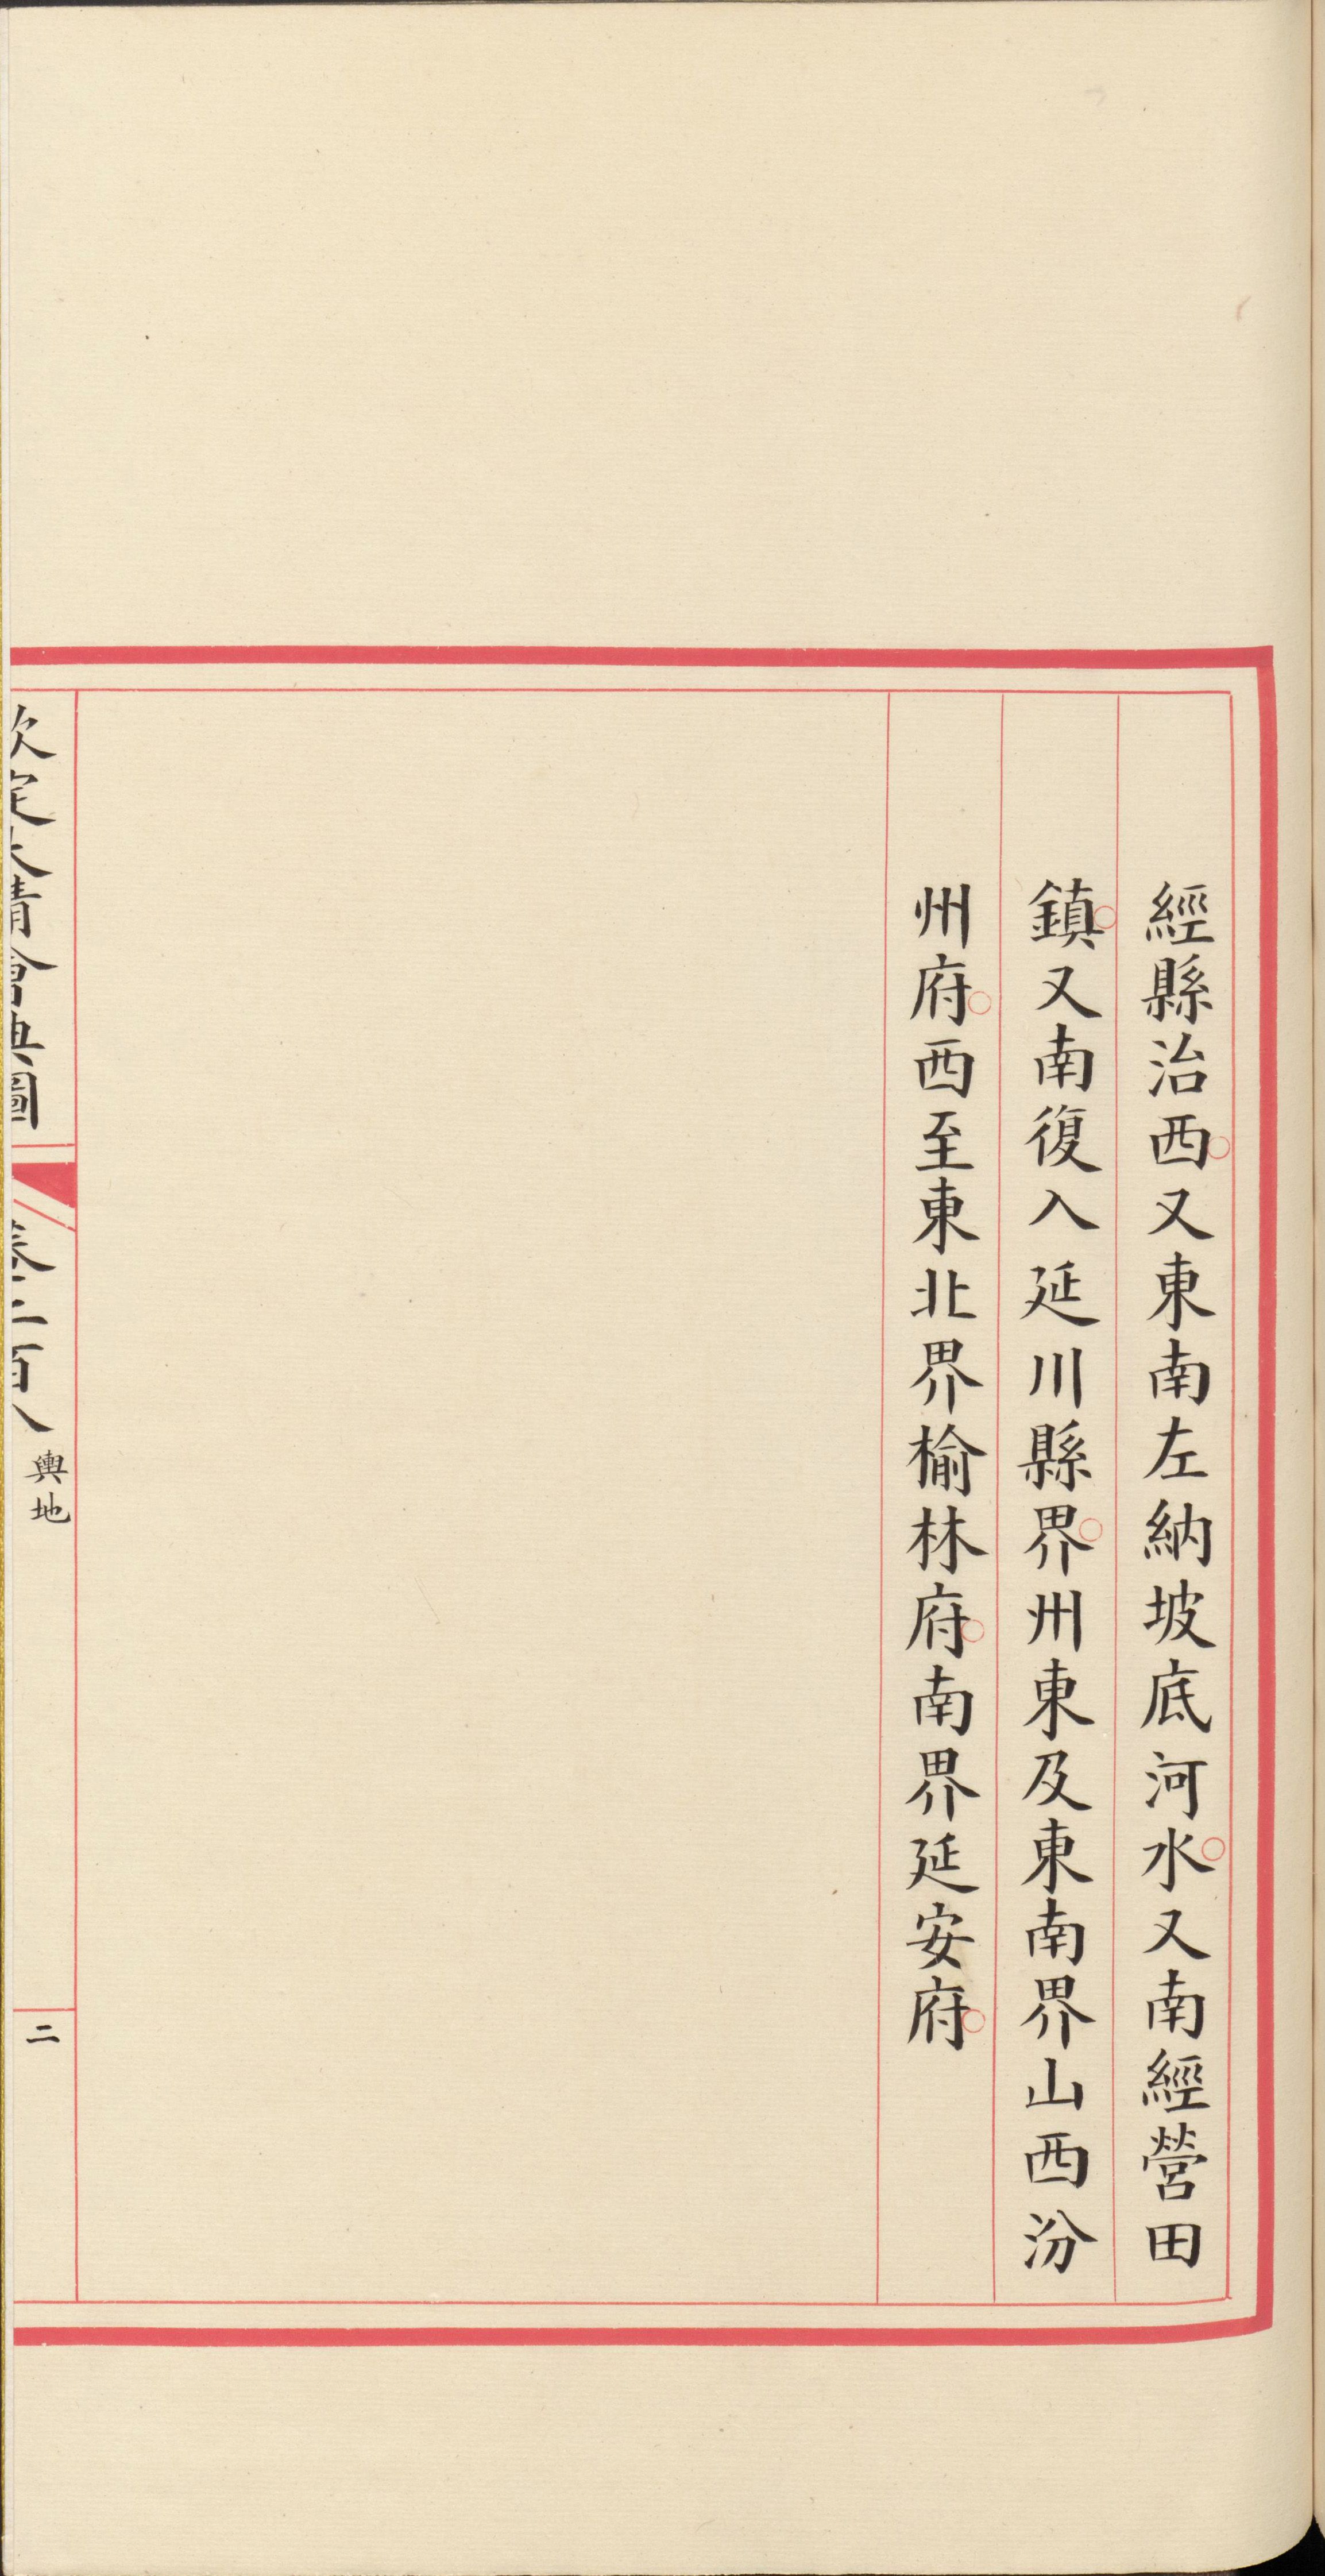 經縣治西○又東南左納坡底河水○又南經營田
鎮○又南復入延川縣界○州東及東南界山西汾
州府○西至東北界榆林府○南界延安府○
欽定大清會典圖
卷二百八
輿地
二